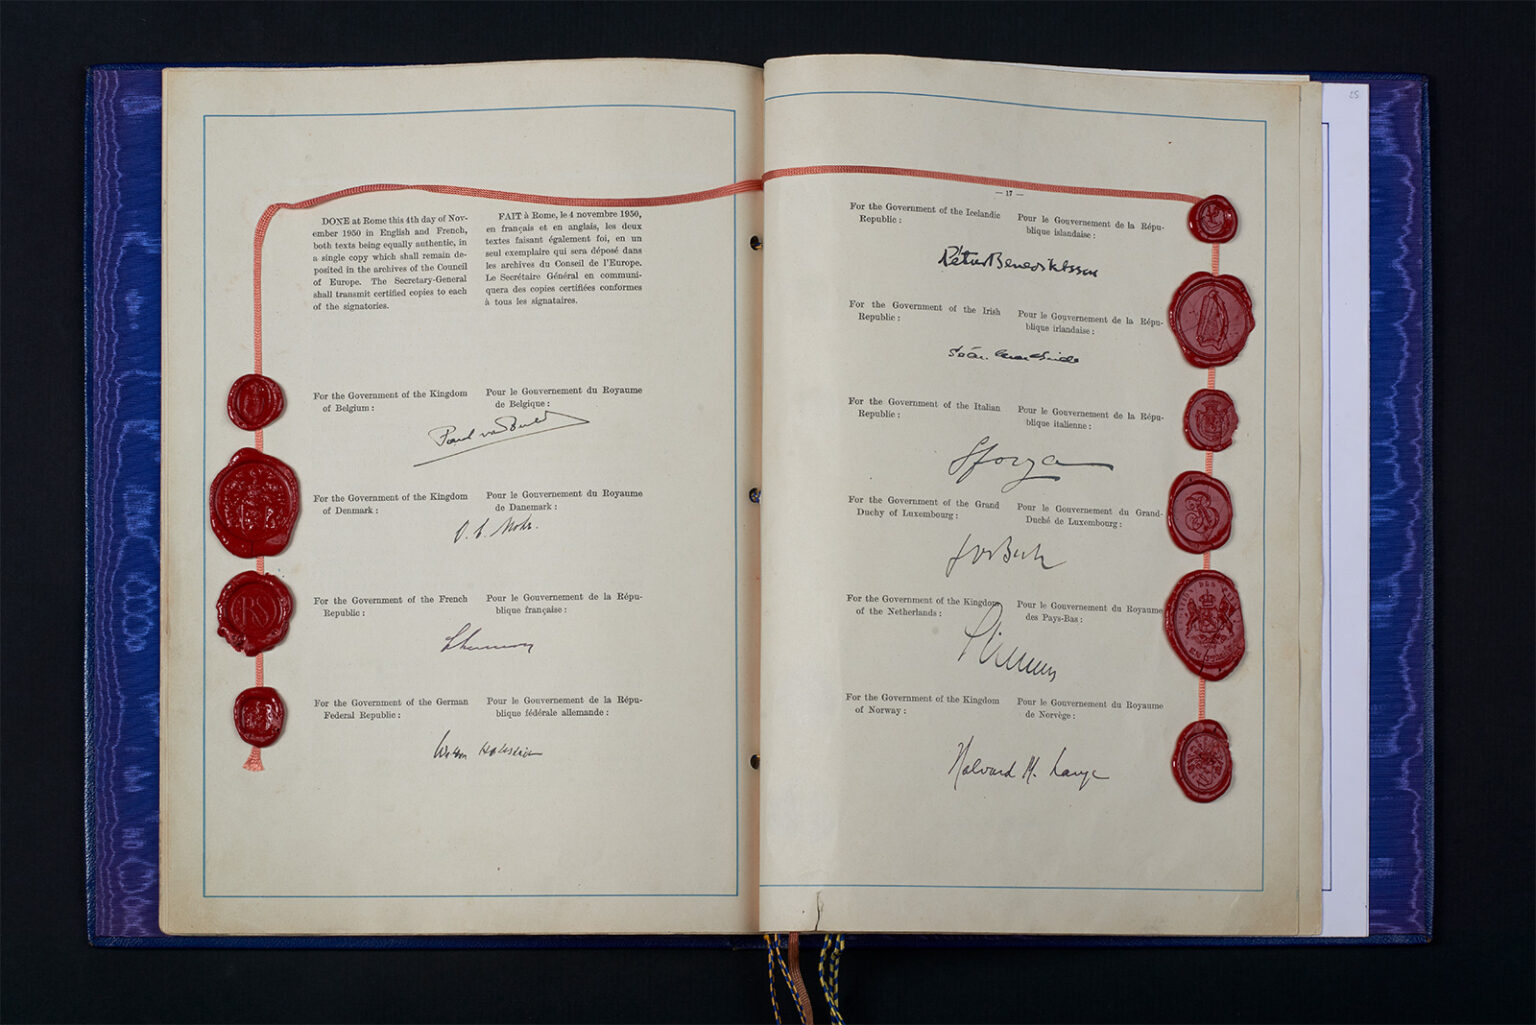 DONE at Rome this 4th day of Nov-
ember 1950 in English and French,
both texts being equally authentic, in
a single copy which shall remain de-
posited in the archives of the Council
of Europe. The Secretary-General
shall transmit certified copies to each
of the signatories.
FAIT à Rome, le 4 novembre 1950,
en français et en anglais, les deux
textes faisant également foi, en un
seul exemplaire qui sera déposé dans
les archives du Conseil de l'Europe.
Le Secrétaire Général en communi-
quera des copies certifiées conformes
à tous les signataires.
For the Government of the Kingdom
of Belgium :
Pour le Gouvernement du Royaume
de Belgique :
Paul van
For the Government of the Kingdom
of Denmark :
Pour le Gouvernement du Royaume
de Danemark :
O. C. Mohr.
For the Government of the French
Republic :
Pour le Gouvernement de la Répu-
blique française :
RS
For the Government of the German
Federal Republic :
Pour le Gouvernement de la Répu-
blique fédérale allemande :
— 17 —
25
For the Government of the Icelandic
Republic :
Pour le Gouvernement de la Répu-
blique islandaise :
Pétur Benediktsson
For the Government of the Irish
Republic :
Pour le Gouvernement de la Répu-
blique irlandaise :
Seán
For the Government of the Italian
Republic :
Pour le Gouvernement de la Répu-
blique italienne :
Sforza
For the Government of the Grand
Duchy of Luxembourg :
Pour le Gouvernement du Grand-
Duché de Luxembourg :
Jos Bech
For the Government of the Kingdom
of the Netherlands :
Pour le Gouvernement du Royaume
des Pays-Bas :
For the Government of the Kingdom
of Norway :
Pour le Gouvernement du Royaume
de Norvège :
Halvard M. Lange